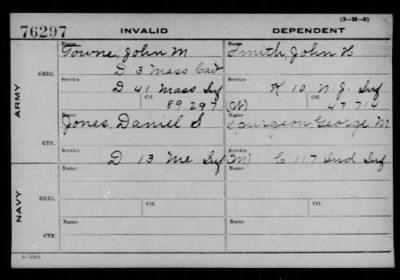 (3-H-5)
76297 INVALID DEPENDENT
Name Name
Towne, John M Smith, John H
D 3 Mass Cav
ORIG. Service Service
D 41 Mass Inf K 10 N.J. Inf
Ctf. Ctf.
89297 (W) 47714
ARMY
Name Name
Jones, Daniel S Spurgeon George M
Service Service
CTF. D 13 Me Inf (M) C 117 Ind Inf
Name Name
ORIG.
Service Ctf. Service Ctf.
NAVY
Name Name
CTF.